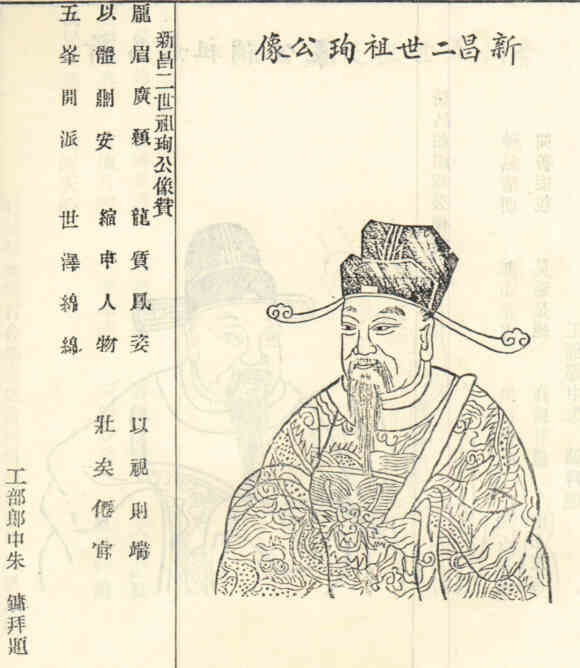 新昌二世祖珣公像
新昌二世祖珣公像贊
龐眉廣顙 龍質鳳姿 以視則端
以體則安 縉申人物 壯矣僊官
五峯開派 世澤綿綿
工部郎中朱 鏞拜題